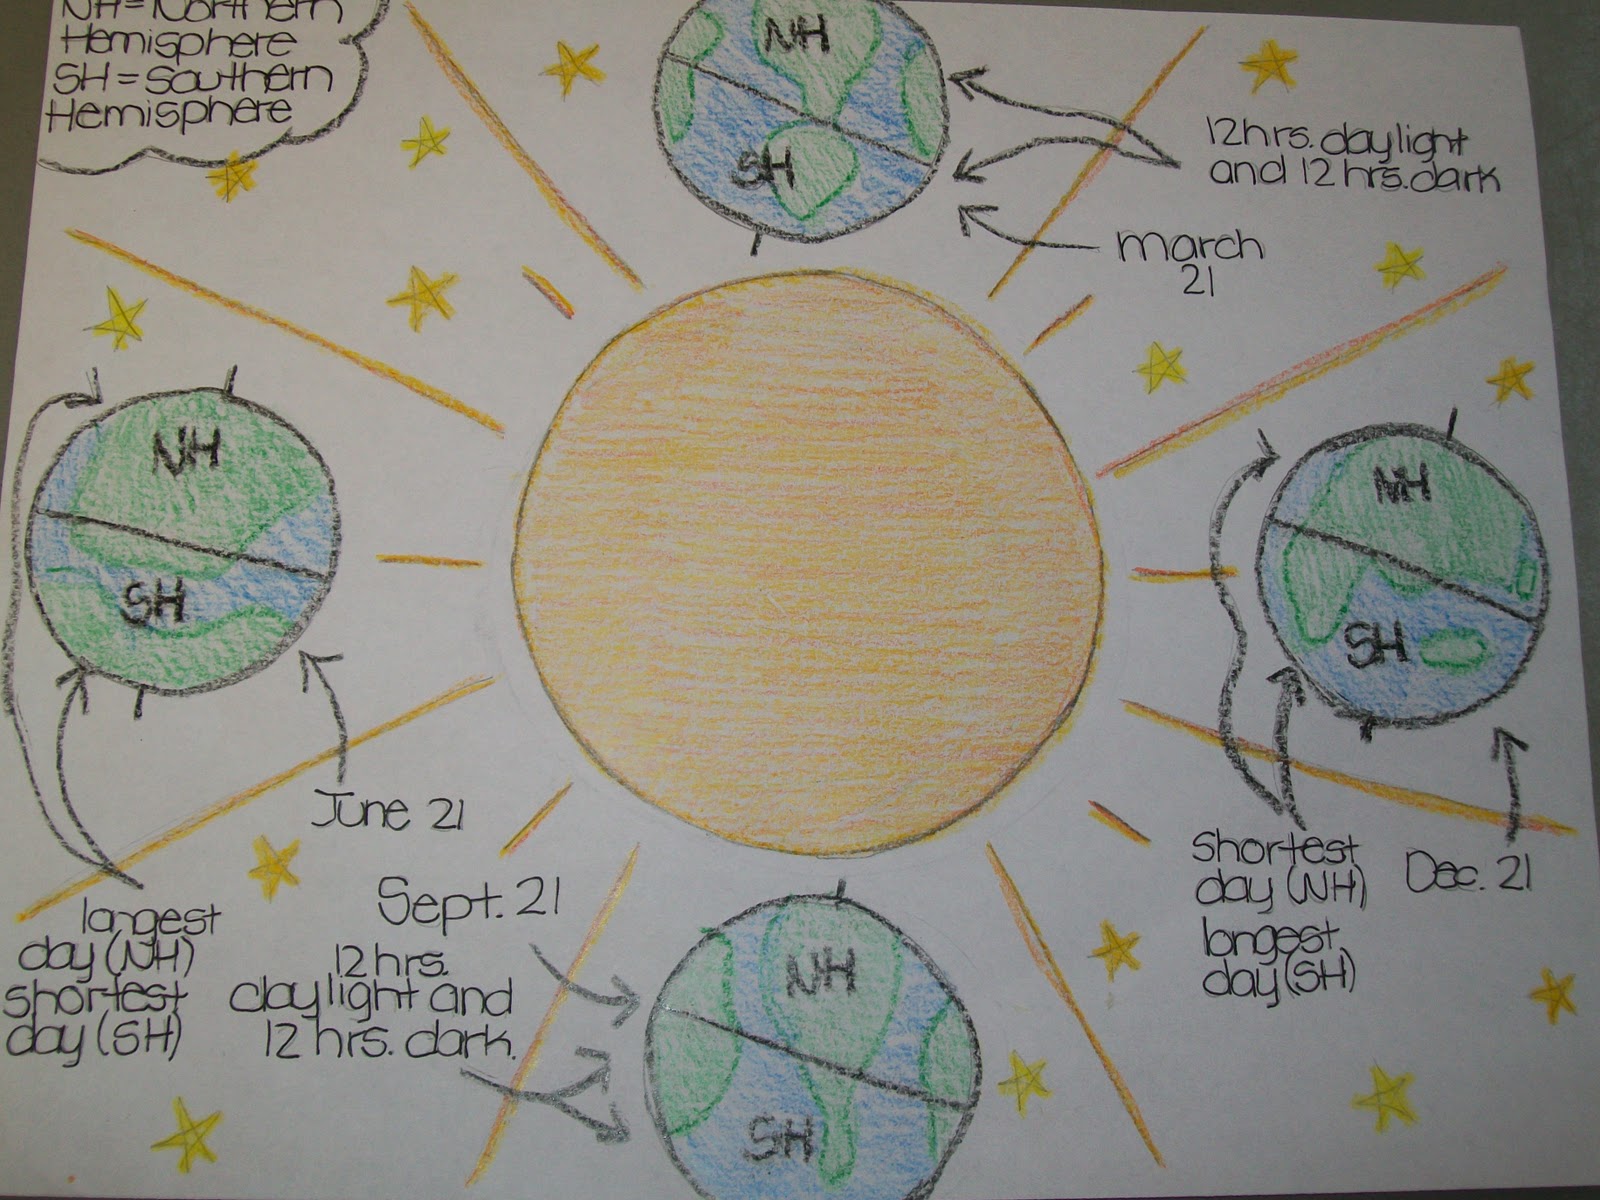 NH = Northern
Hemisphere
SH = Southern
Hemisphere
NH
SH
12hrs. daylight
and 12 hrs. dark
march
21
NH
SH
June 21
longest
day (NH)
shortest
day (SH)
NH
SH
shortest
day (NH)
longest
day (SH)
Dec. 21
Sept. 21
12 hrs.
daylight and
12 hrs. dark.
NH
SH